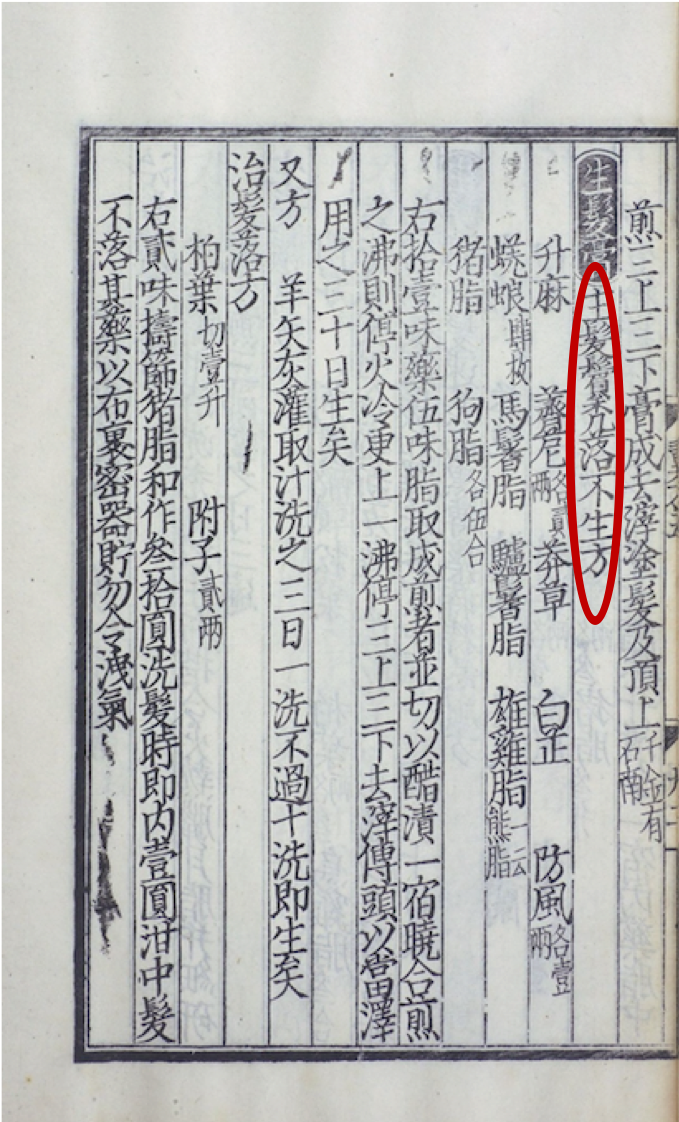 煎三上三下膏成去滓塗髮及頂上千金有石南
生髮膏主髮鬢禿落不生方
升麻 薺苨各貳兩 莽草 白芷 防風各壹兩
蜣蜋肆枚 馬鬐脂 驢鬐脂 雄雞脂一云熊脂
猪脂 狗脂各伍合
右拾壹味藥伍味脂取成煎者並切以醋漬一宿曉合煎
之沸則停火冷更上一沸停三上三下去滓傅頭以當澤
用之三十日生矣
又方 羊矢灰灌取汁洗之三日一洗不過十洗即生矣
治髮落方
柏葉切壹升 附子貳兩
右貳味擣篩猪脂和作叄拾圓洗髮時即内壹圓泔中髮
不落其藥以布裹密器貯勿令洩氣